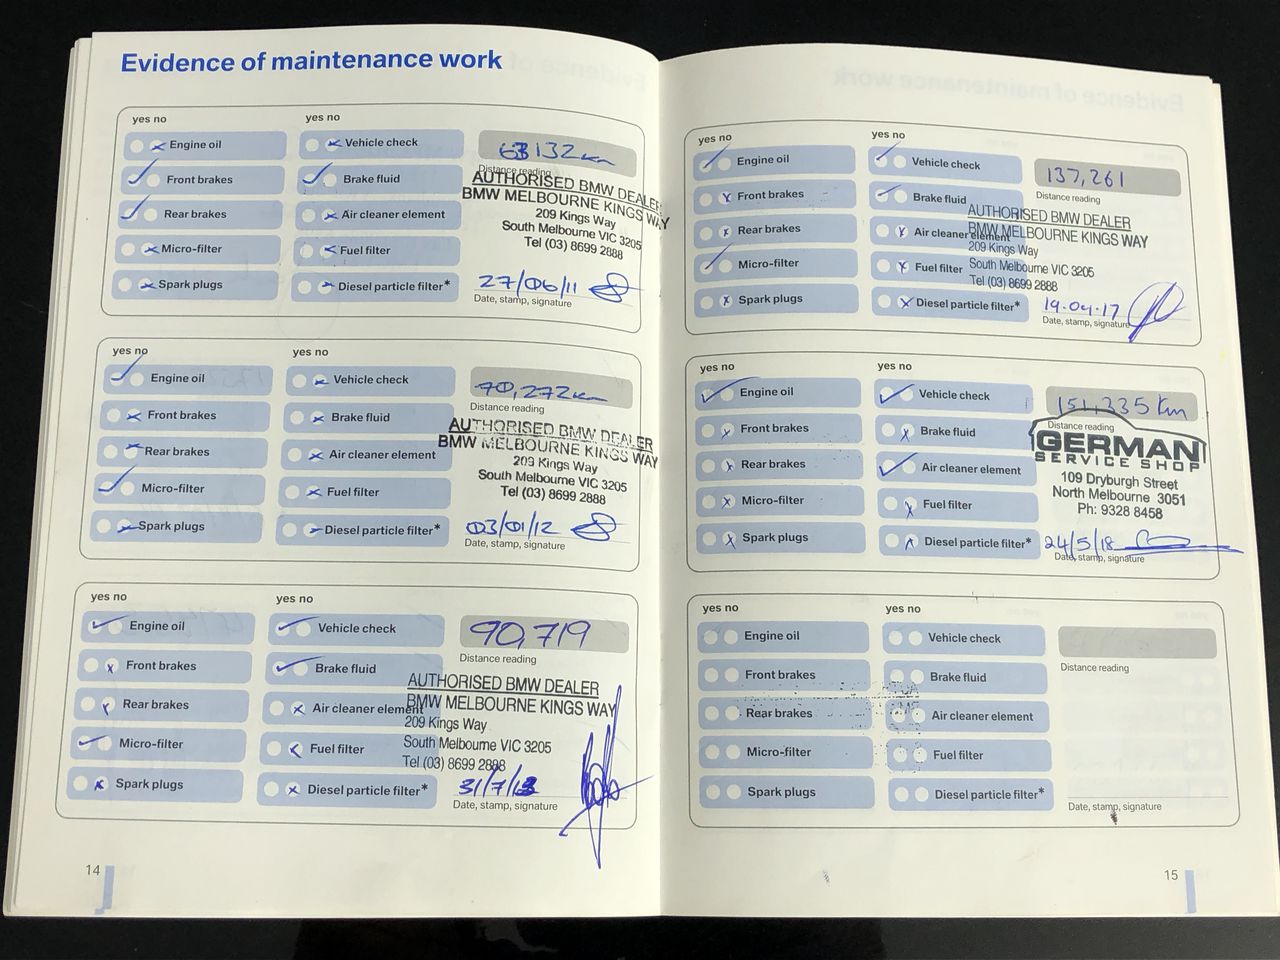 Evidence of maintenance work
yes no
yes no
Engine oil
Vehicle check
63132km
Distance reading
Front brakes
Brake fluid
AUTHORISED BMW DEALER
BMW MELBOURNE KINGS WAY
Rear brakes
Air cleaner element
209 Kings Way
South Melbourne VIC 3205
Micro-filter
Fuel filter
Tel (03) 8699 2888
Spark plugs
Diesel particle filter*
27/06/11
Date, stamp, signature
yes no
yes no
Engine oil
Vehicle check
70,272km
Distance reading
Front brakes
Brake fluid
AUTHORISED BMW DEALER
BMW MELBOURNE KINGS WAY
Rear brakes
Air cleaner element
209 Kings Way
South Melbourne VIC 3205
Micro-filter
Fuel filter
Tel (03) 8699 2888
Spark plugs
Diesel particle filter*
03/01/12
Date, stamp, signature
yes no
yes no
Engine oil
Vehicle check
90,719
Distance reading
Front brakes
Brake fluid
AUTHORISED BMW DEALER
Rear brakes
Air cleaner element
BMW MELBOURNE KINGS WAY
209 Kings Way
Micro-filter
Fuel filter
South Melbourne VIC 3205
Tel (03) 8699 2888
Spark plugs
Diesel particle filter*
31/7/13
Date, stamp, signature
14
yes no
yes no
Engine oil
Vehicle check
137,261
Distance reading
Front brakes
Brake fluid
AUTHORISED BMW DEALER
Rear brakes
Air cleaner element
BMW MELBOURNE KINGS WAY
209 Kings Way
Micro-filter
Fuel filter
South Melbourne VIC 3205
Tel (03) 8699 2888
Spark plugs
Diesel particle filter*
19.04.17
Date, stamp, signature
yes no
yes no
Engine oil
Vehicle check
151,335 km
Distance reading
Front brakes
Brake fluid
GERMAN
SERVICE SHOP
Rear brakes
Air cleaner element
109 Dryburgh Street
North Melbourne 3051
Micro-filter
Fuel filter
Ph: 9328 8458
Spark plugs
Diesel particle filter*
24/5/18
Date, stamp, signature
yes no
yes no
Engine oil
Vehicle check
Distance reading
Front brakes
Brake fluid
Rear brakes
Air cleaner element
Micro-filter
Fuel filter
Spark plugs
Diesel particle filter*
Date, stamp, signature
15